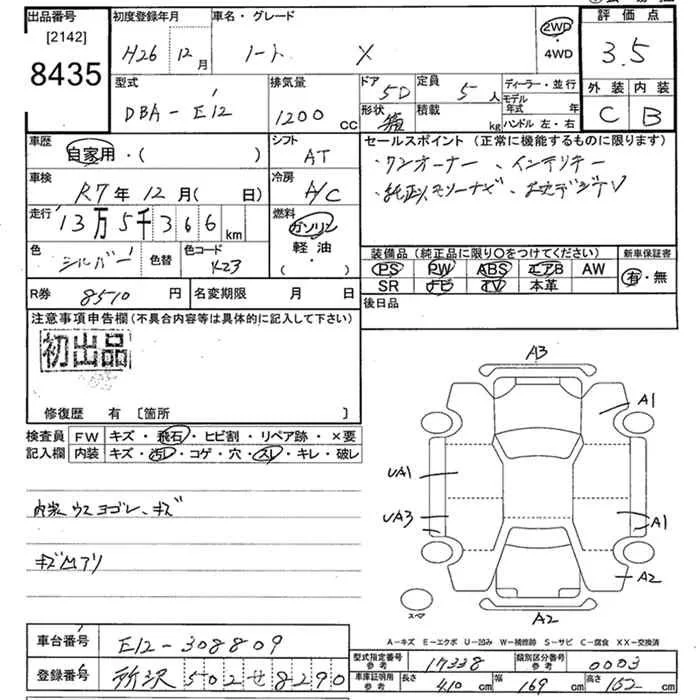 出品番号
[2142]
8435
初度登録年月
H26 年 12 月
車名・グレード
ノート X
2WD
・4WD
評価点
3.5
外装 内装
C B
型式
DBA-E12
排気量
1200 cc
ドア 5D
形状
定員 5 人
積載 kg
ディーラー・並行
モデル年式 年
ハンドル 左・右
車歴
自家用・( )
シフト
AT
セールスポイント(正常に機能するものに限ります)
・ワンオーナー ・インテリキー
・純正メモリーナビ ・地デジTV
車検
R7年12月( 日)
冷房
A/C
走行
13万5千366km
燃料
ガソリン
軽油
・( )
色
シルバー
色替
色コード
K23
装備品(純正品に限り○をつけてください)
PS PW ABS エアB AW
SR ナビ TV 本革
新車保証書
有・無
R券 8510 円
名変期限 月 日
後日品
注意事項申告欄(不具合内容等は具体的に記入して下さい)
初出品
修復歴 有 [箇所 ]
検査員記入欄
FW キズ・飛石・ヒビ割・リペア跡・×要
内装 キズ・汚レ・コゲ・穴・スレ・キレ・破レ
内装ウスヨゴレ、キズ
A3
A1
UA1
UA3
A1
A2
A2
スペア
A-キズ E-エクボ U-凹み W-補修跡 S-サビ C-腐食 XX-交換済
車台番号
E12-308809
登録番号
所沢 502 せ 8290
型式指定番号 参考 17338
類別区分番号 参考 0003
車庫証明用 参考 長さ 410 cm 幅 169 cm 高さ 152 cm